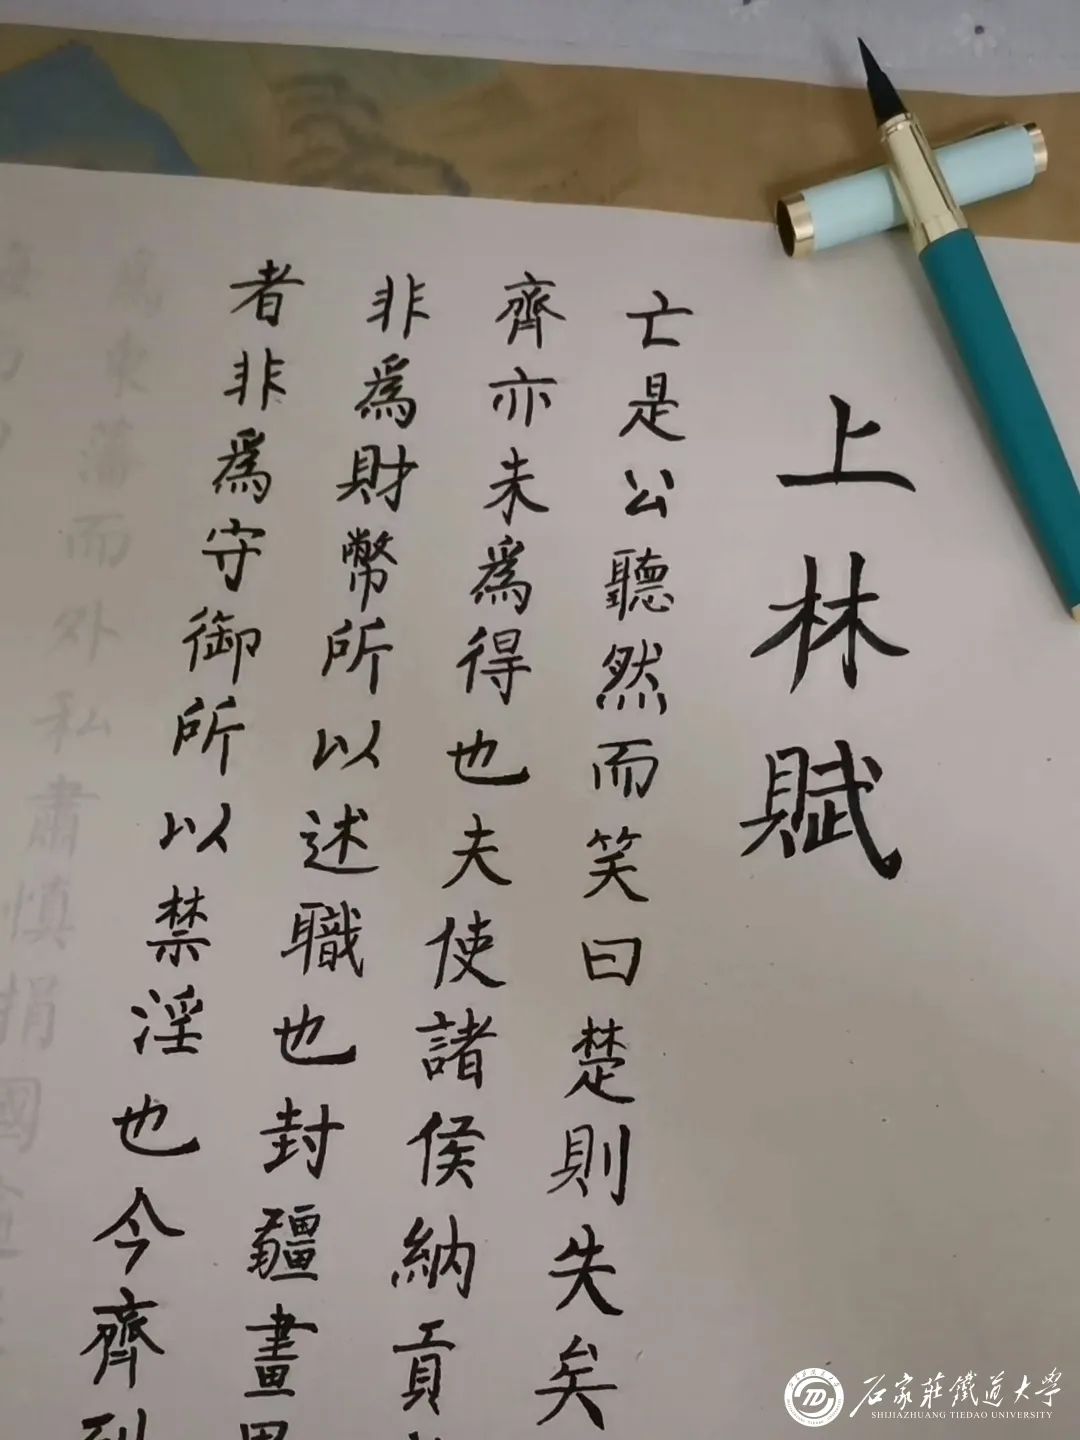 上林賦
亡是公聽然而笑曰楚則失矣
齊亦未為得也夫使諸侯納貢
非為財幣所以述職也封疆畫界
者非為守御所以禁淫也今齊列
為東藩而外私肅慎捐國
石家莊鐵道大學
SHIJIAZHUANG TIEDAO UNIVERSITY